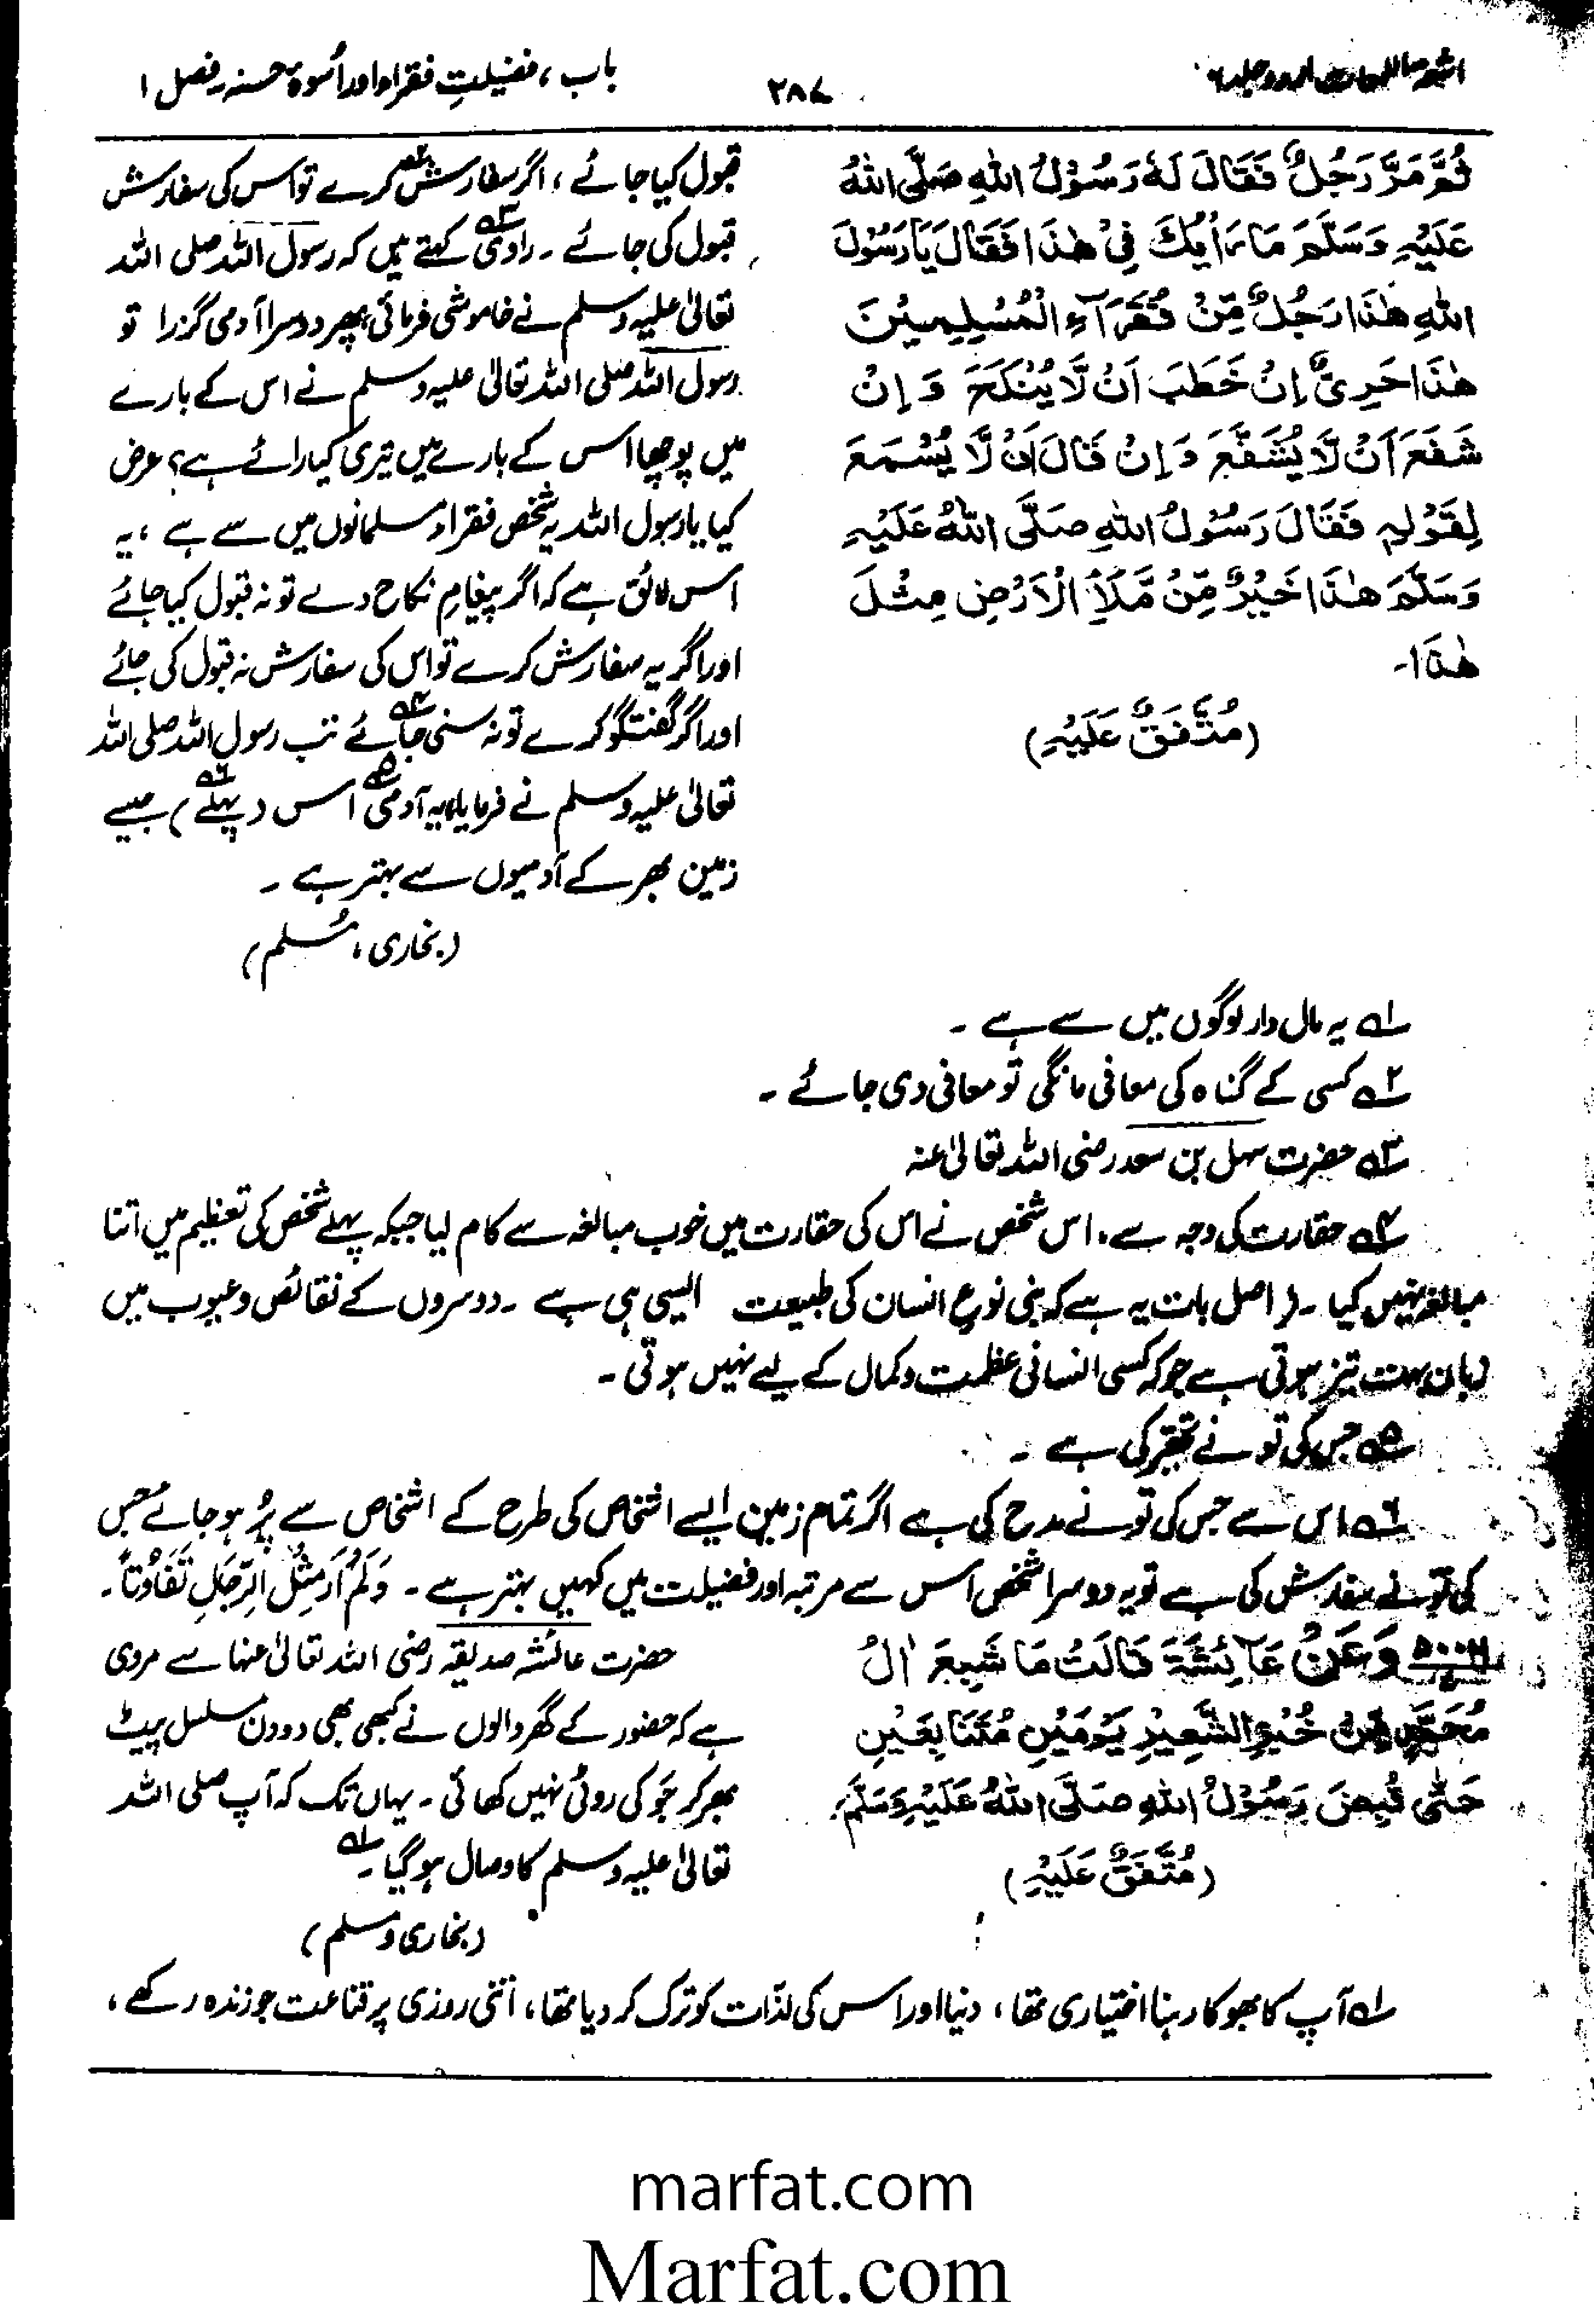 اشعۃ اللمعات اردو جلد ۶
۲۸۷
باب، فضیلتِ فقراء اور اُسوۂ حسنہ فصل ۱
ثُمَّ مَرَّ رَجُلٌ فَقَالَ لَهٗ رَسُوْلُ اللهِ صَلَّى اللهُ
عَلَيْهِ وَسَلَّمَ مَا رَأْيُكَ فِيْ هٰذَا فَقَالَ يَا رَسُوْلَ
اللهِ هٰذَا رَجُلٌ مِّنْ فُقَرَآءِ الْمُسْلِمِيْنَ
هٰذَا حَرِيٌّ إِنْ خَطَبَ اَنْ لَّا يُنْكَحَ وَ اِنْ
شَفَعَ اَنْ لَّا يُشَفَّعَ وَ اِنْ قَالَ اَنْ لَّا يُسْمَعَ
لِقَوْلِهٖ فَقَالَ رَسُوْلُ اللهِ صَلَّى اللهُ عَلَيْهِ
وَسَلَّمَ هٰذَا خَيْرٌ مِّنْ مَّلَأِ الْاَرْضِ مِثْلَ
هٰذَا۔
(مُتَّفَقٌ عَلَيْهِ)
قبول کیا جائے، اگر سفارش۲ کرے تو اس کی سفارش
قبول کی جائے۔ راوی۳ کہتے ہیں کہ رسول اللہ صلی اللہ
تعالیٰ علیہ وسلم نے خاموشی فرمائی پھر دوسرا آدمی گزرا تو
رسول اللہ صلی اللہ تعالیٰ علیہ وسلم نے اس کے بارے
میں پوچھا اس کے بارے میں تیری کیا رائے ہے؟ عرض
کیا یا رسول اللہ یہ شخص فقراء مسلمانوں میں سے ہے، یہ
اس لائق ہے کہ اگر پیغامِ نکاح دے تو نہ قبول کیا جائے
اور اگر یہ سفارش کرے تو اس کی سفارش نہ قبول کی جائے
اور اگر گفتگو کرے تو نہ سنی جائے۴ تب رسول اللہ صلی اللہ
تعالیٰ علیہ وسلم نے فرمایا، یہ آدمی۵ اس (پہلے۶) جیسے
زمین بھر کے آدمیوں سے بہتر ہے۔
(بخاری، مُسلم)
۱ یہ مال دار لوگوں میں سے ہے۔
۲ کسی کے گناہ کی معافی مانگی تو معافی دی جائے۔
۳ حضرت سہل بن سعد رضی اللہ تعالیٰ عنہ
۴ حقارت کی وجہ سے۔ اس شخص نے اس کی حقارت میں خوب مبالغہ سے کام لیا جبکہ پہلے شخص کی تعظیم میں اتنا
مبالغہ نہیں کیا۔ (اصل بات یہ ہے کہ بنی نوعِ انسان کی طبیعت ایسی ہی ہے۔ دوسروں کے نقائص و عیوب میں
زبان بہت تیز ہوتی ہے جو کہ کسی انسانی عظمت و کمال کے لیے نہیں ہوتی۔
۵ جس کی تو نے تحقیر کی ہے۔
۶ اس سے جس کی تو نے مدح کی ہے اگر تمام زمین ایسے اشخاص کی طرح کے اشخاص سے پُر ہو جائے جس
کی تو نے سفارش کی ہے تو یہ دوسرا شخص اس سے مرتبہ اور فضیلت میں کہیں بہتر ہے۔ وَلَمْ اَرَ مِثْلَ الرِّجَالِ تَفَاوُتاً۔
وَعَنْ عَآئِشَةَ قَالَتْ مَا شَبِعَ اٰلُ
مُحَمَّدٍ مِنْ خُبْزِ الشَّعِيْرِ يَوْمَيْنِ مُتَتَابِعَيْنِ
حَتّٰى قُبِضَ رَسُوْلُ اللهِ صَلَّى اللهُ عَلَيْهِ وَسَلَّمَ۔
(مُتَّفَقٌ عَلَيْهِ)
حضرت عائشہ صدیقہ رضی اللہ تعالیٰ عنہا سے مروی
ہے کہ حضور کے گھر والوں نے کبھی بھی دو دن مسلسل پیٹ
بھر کر جَو کی روٹی نہیں کھائی۔ یہاں تک کہ آپ صلی اللہ
تعالیٰ علیہ وسلم کا وصال ہو گیا۔۱
(بخاری و مسلم)
۱ آپ کا بھوکا رہنا اختیاری تھا، دنیا اور اس کی لذّات کو ترک کر دیا تھا، اتنی روزی پر قناعت جو زندہ رکھے،
marfat.com
Marfat.com